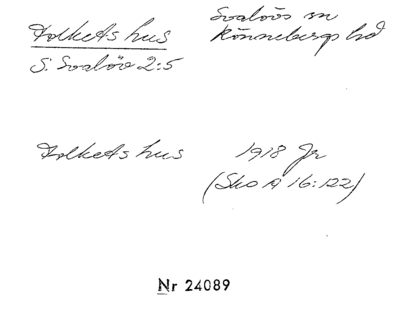 Folkets hus
Svalövs sn
Rönnebergs hd
S. Svalöv 2:5
Folkets hus 1918 Jr
(Sko A 16:122)
Nr 24089